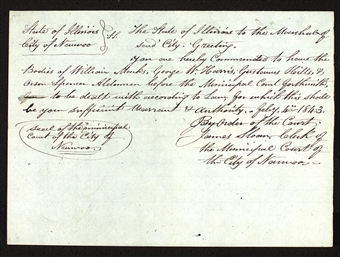 State of Illinois
City of Nauvoo
Sst.
The State of Illinois to the Marshal of
said City. Greeting.
you are hereby Commanded to have the
Bodies of William Marks, George W. Harris, Gustavus Hills, &
Orson Spencer Aldermen before the Municipal Court forthwith
to be dealt with according to law, for which this shall
be your sufficient Warrant & Authority. Feby 4th 1843.
By order of the Court
James Sloan Clerk of
the Municipal Court of
the City of Nauvoo
seal of the municipal
Court of the City of
Nauvoo